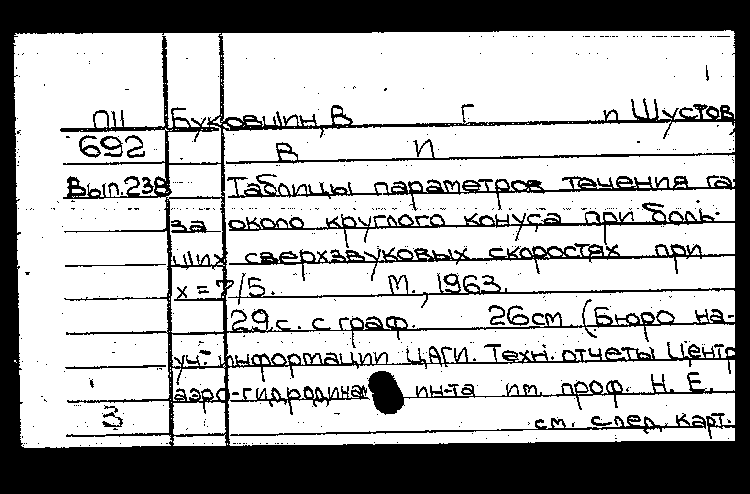 П11 Буковшин, В Г п Шустов,
692 В И
Вып.238 Таблицы параметров течения га-
за около круглого конуса при боль-
ших сверхзвуковых скоростях при
х = 7/5. М., 1963.
29.с. с граф. 26см. (Бюро на-
уч. информации ЦАГИ. Техн. отчеты Центр
аэро-гидродинам ин-та им. проф. Н. Е.
3 см. след. карт.